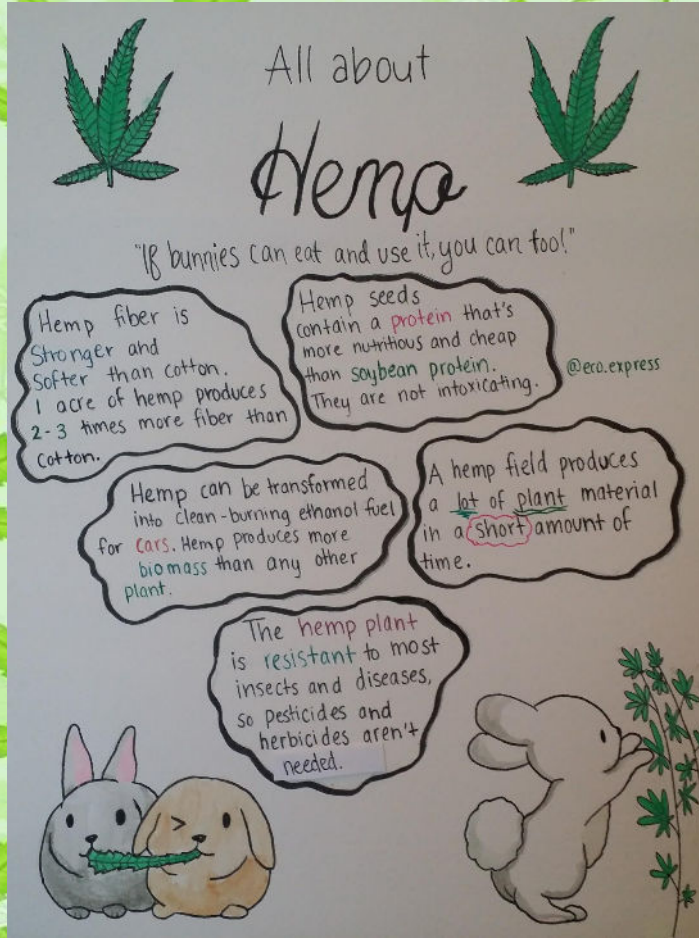 All about
Hemp
"If bunnies can eat and use it, you can too!"
Hemp fiber is
stronger and
softer than cotton.
1 acre of hemp produces
2-3 times more fiber than
cotton.
Hemp seeds
contain a protein that's
more nutritious and cheap
than soybean protein.
They are not intoxicating.
@eco.express
Hemp can be transformed
into clean-burning ethanol fuel
for cars. Hemp produces more
biomass than any other
plant.
A hemp field produces
a lot of plant material
in a short amount of
time.
The hemp plant
is resistant to most
insects and diseases,
so pesticides and
herbicides aren't
needed.